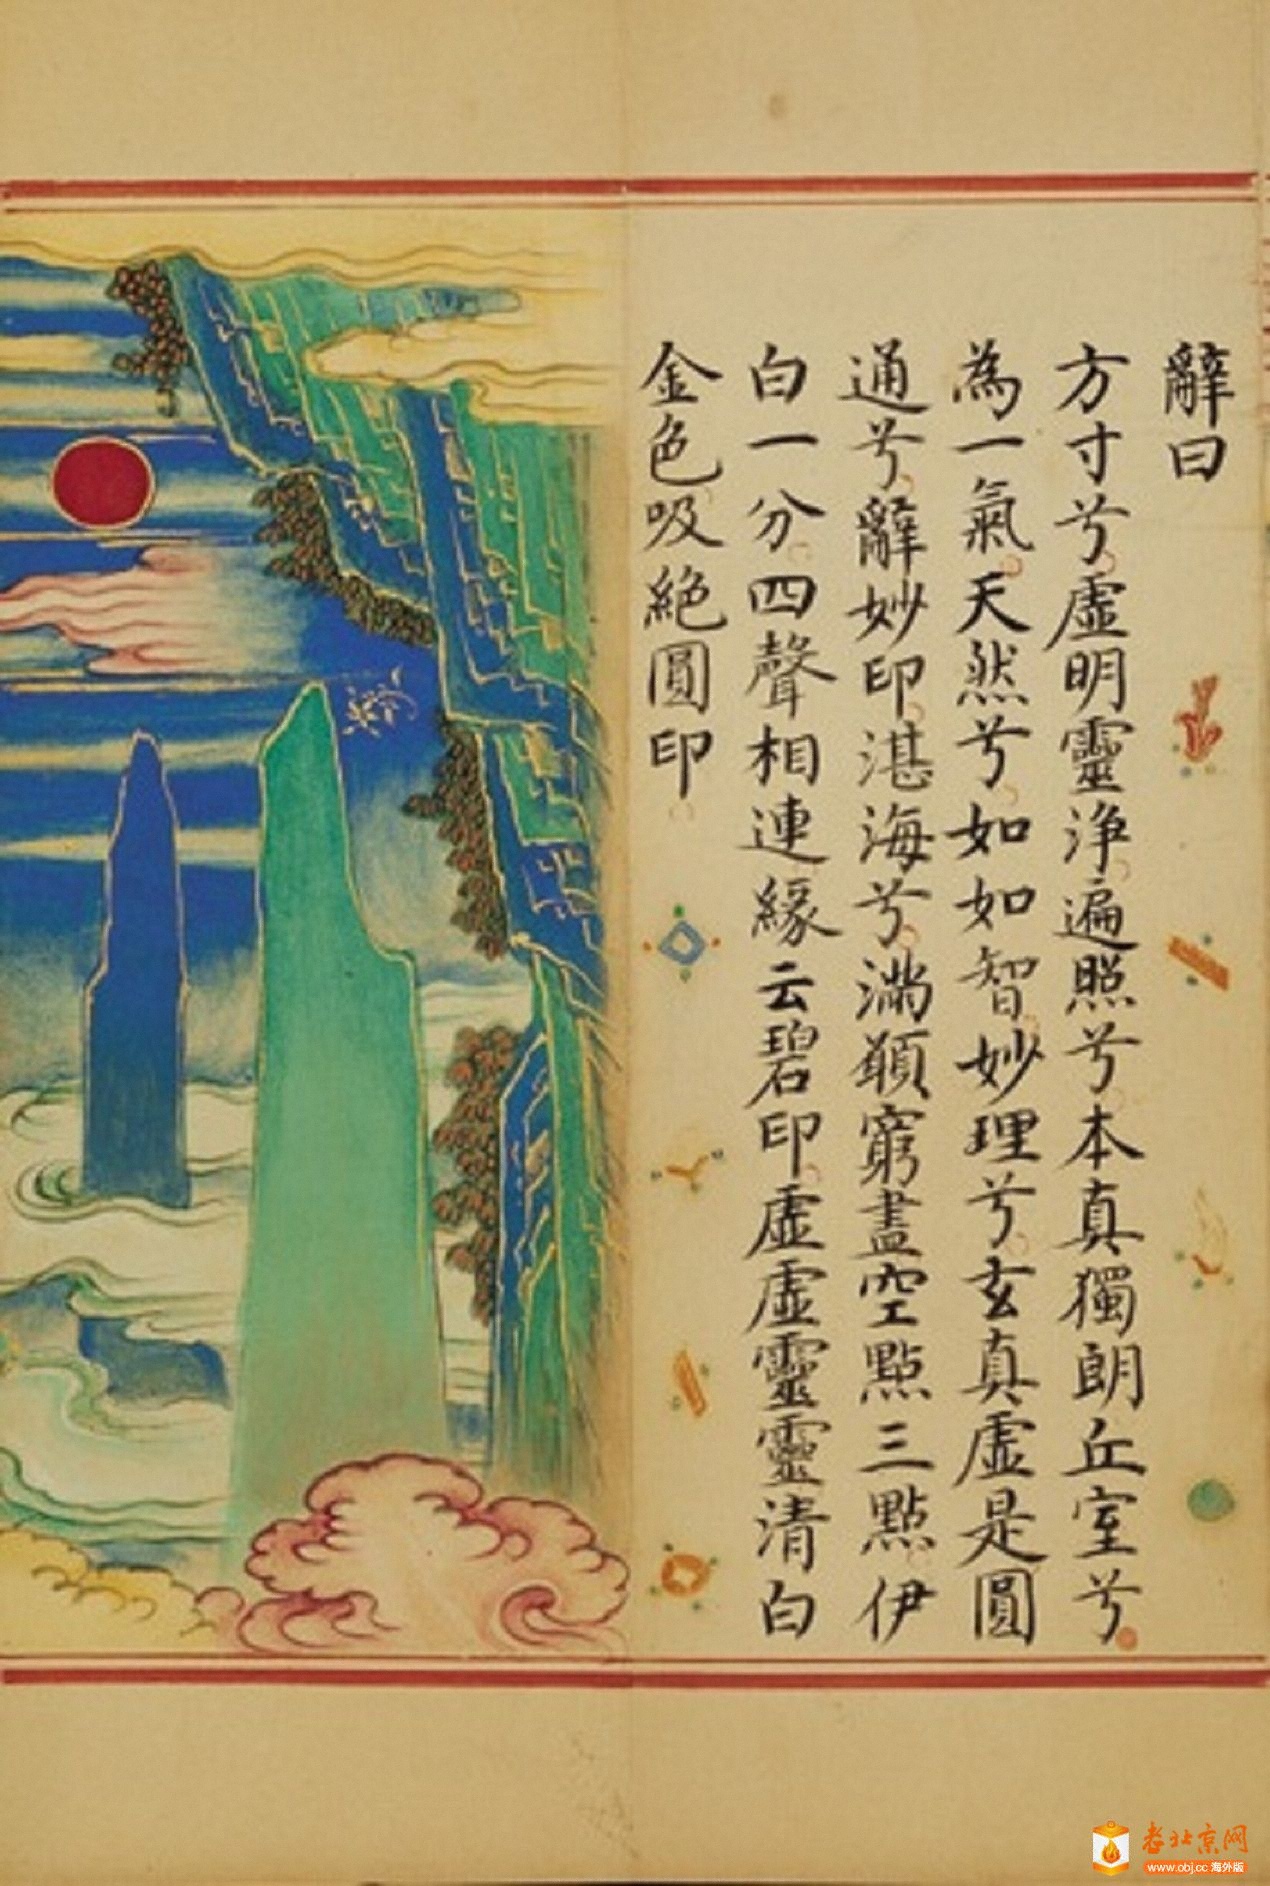 辭曰
方寸兮虛明靈淨遍照兮本真獨朗丘室兮
為一氣天然兮如如智妙理兮玄真虛是圓
通兮辭妙印湛海兮滿願窮盡空點三點伊
白一分四聲相連緣云碧印虛虛靈靈清白
金色吸絕圓印
老北京网
www.obj.cc 海外版